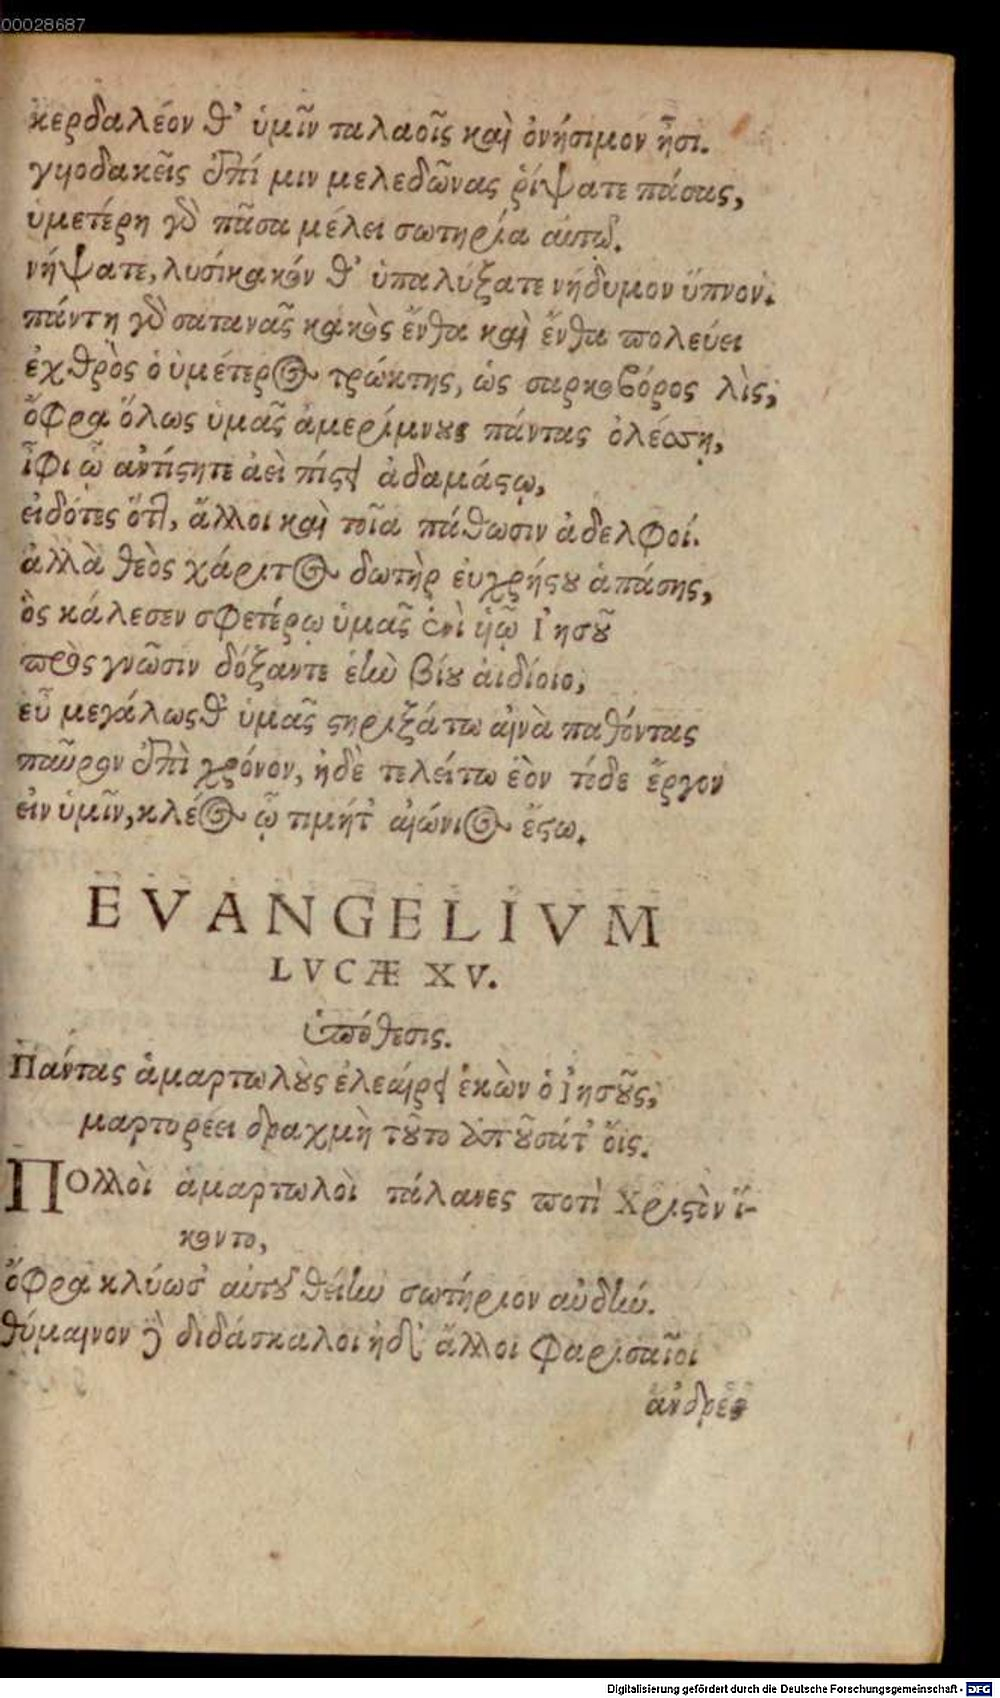 00028687
κερδαλέον θ' ὑμῖν ταλαοῖς καὶ ὀνήσιμον ᾖσι.
γυιοδακεῖς ἐπί μιν μελεδῶνας ῥίψατε πάσας,
ὑμετέρη γὰρ πᾶσα μέλει σωτηρία αὐτῷ.
νήψατε, λυσίκακόν θ' ὑπαλύξατε νήδυμον ὕπνον.
πάντη γὰρ σατανᾶς κακὸς ἔνθα καὶ ἔνθα πολεύει
ἐχθρὸς ὁ ὑμέτερος τρώκτης, ὡς σαρκοβόρος λὶς,
ὄφρα ὅλως ὑμᾶς ἀμερίμνους πάντας ὀλέσσῃ,
ἶφι ᾧ ἀντίστητε ἀεὶ πίστει ἀδαμάστῳ,
εἰδότες ὅτι, ἄλλοι καὶ τοῖα πάθωσιν ἀδελφοί.
ἀλλὰ θεὸς χάριτος δωτὴρ ἐυχρήστου ἁπάσης,
ὃς κάλεσεν σφετέρῳ ὑμᾶς ἐνὶ υἱῷ Ἰησοῦ
πρὸς γνῶσιν δόξαντε ἑὴν βίου ἀιδίοιο,
εὖ μεγάλως θ' ὑμᾶς στηριξάτω αἰνὰ παθόντας
παῦρον ἐπὶ χρόνον, ἠδὲ τελείτω ἑὸν τόδε ἔργον
εἰν ὑμῖν, κλέος ᾧ τιμήτ' αἰώνιος ἔστω.
EVANGELIVM
LVCÆ XV.
ὑπόθεσις.
Πάντας ἁμαρτωλοὺς ἐλεαίρει ἑκὼν ὁ Ἰησοῦς,
μαρτορέει δραχμὴ τοῦτο ἀπουσάτ' ὄις.
Πολλοὶ ἁμαρτωλοὶ τελῶνες ποτὶ Χριστὸν ἵ-
κοντο,
ὄφρα κλύωσ' αὐτοῦ θείην σωτήριον αὐδήν.
θύμαινον δὲ διδάσκαλοι ἠδ' ἄλλοι Φαρισαῖοι
ἄνδρες
Digitalisierung gefördert durch die Deutsche Forschungsgemeinschaft - DFG